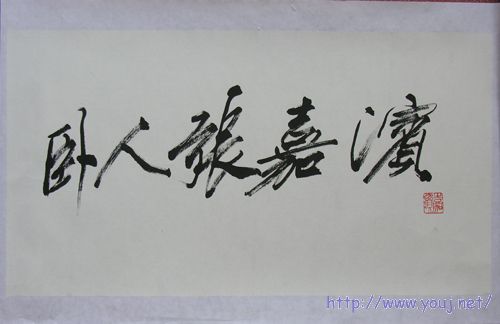 卧人張嘉濱
http://www.youj.net/